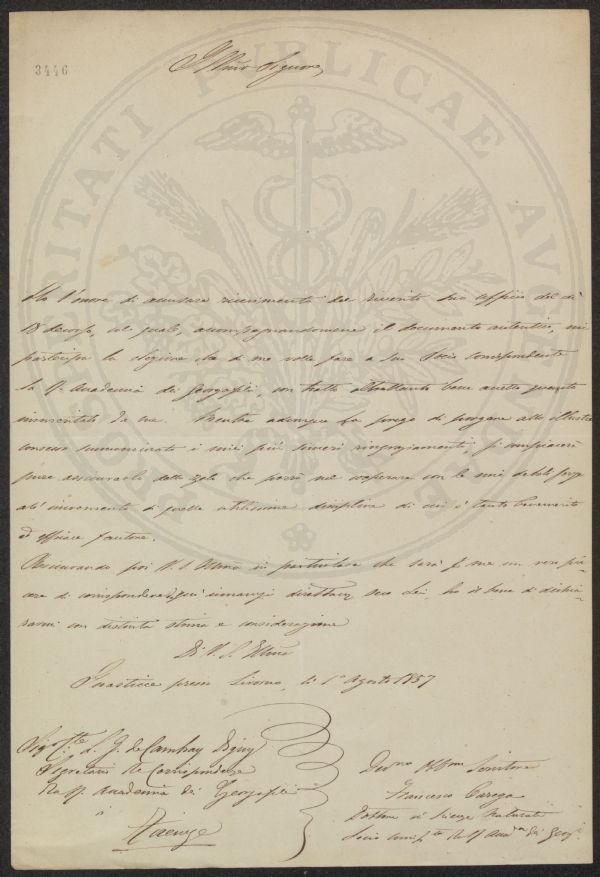 3446
Illmo Signore
PROSPERITATI PUBLICAE AUGENDAE
Ho l'onore di accusare ricevimento del riverito suo officio del dì
18 decorso, col quale, accompagnandomene il documento autentico, mi
partecipa la elezione che di me volle fare a suo Socio corrispondente
la R. Accademia dei Georgofili, con tratto altrettanto benevolo quanto
immeritato da me. Mentre adunque La prego di porgere alla illustre
consesso i miei più sinceri ringraziamenti, si compiacerà
pure assicurarlo dello zelo che porrò nel cooperare con le mie deboli forze
all'incremento di quelle utilissime discipline di cui è tanto benemerito
ed efficace fautore.
Assicurando poi V. S. Illma in particolare che sarà per me un vero pia-
cere di corrispondere d'ora innanzi con Lei, ho il bene di dichia-
rarmi con distinta stima e considerazione
Di V. S. Illma
presso Livorno, li 1° Agosto 1857
Sigr. Cte. L. G. de Cambray Digny
Segretario delle Corrispondenze
della R. Accademia dei Georgofili
a
Firenze
Devmo Obbmo Servitore
Francesco Carega
Dottore in Scienze Naturali
Socio corrispte della R. Accad.a dei Georg.i